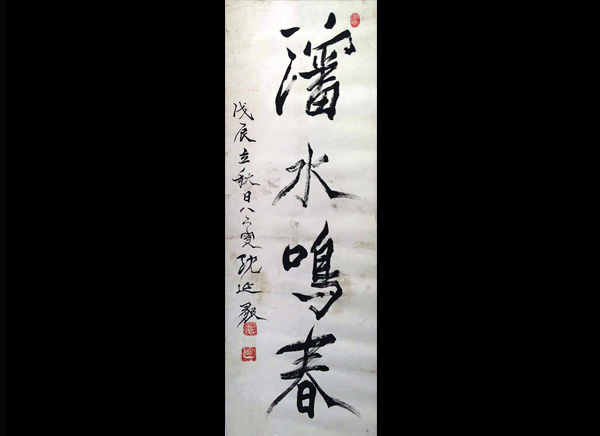 瀋水鳴春
戊辰立秋日八六叟沈延毅